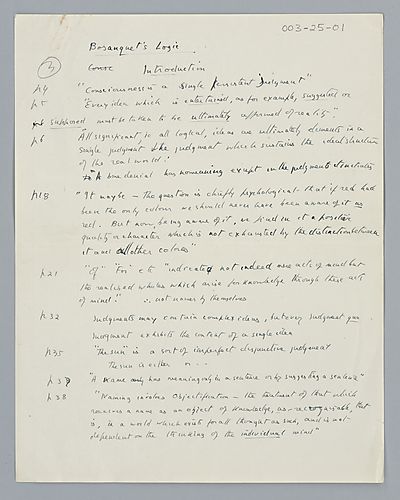 003-25-01
Bosanquet's Logic
3
Introduction
p4 "Consciousness is a single persistent judgment"
p5 "Every idea which is entertained, as for example, suggested or
supposed must be taken to be ultimately affirmed of reality".
p6 All significant ie all logical, ideas are ultimately elements in a
single judgment the judgment which sustains the ideal structure
of the real world.
A bare denial has no meaning except in the judgments it
p18 "It may be – the question is chiefly psychological – that if red had
been the only colour we should never have been aware of it as
red. But now, being aware of it, we find in it a positive
quality or character which is not exhausted by the distinction between
it and all other colours"
p21 "Of" "For" etc "indicate not indeed mere acts of mind but
the realised wholes which arise for knowledge through these acts
of mind." ∴ not names by themselves
p32 Judgments may contain complex ideas, but every judgment qua
judgment exhibits the content of a single idea
p35 "The sun" is a sort of imperfect disjunctive judgment
The sun is either or ..
p37 "A name only has meaning only in a sentence or by suggesting a sentence"
p38 "Naming involves objectification – the treatment of that which
receives a name as an object of knowledge, as recognisable, that
is, in a world which exists for all thought as such, and is not
dependent on the thinking of the individual mind"